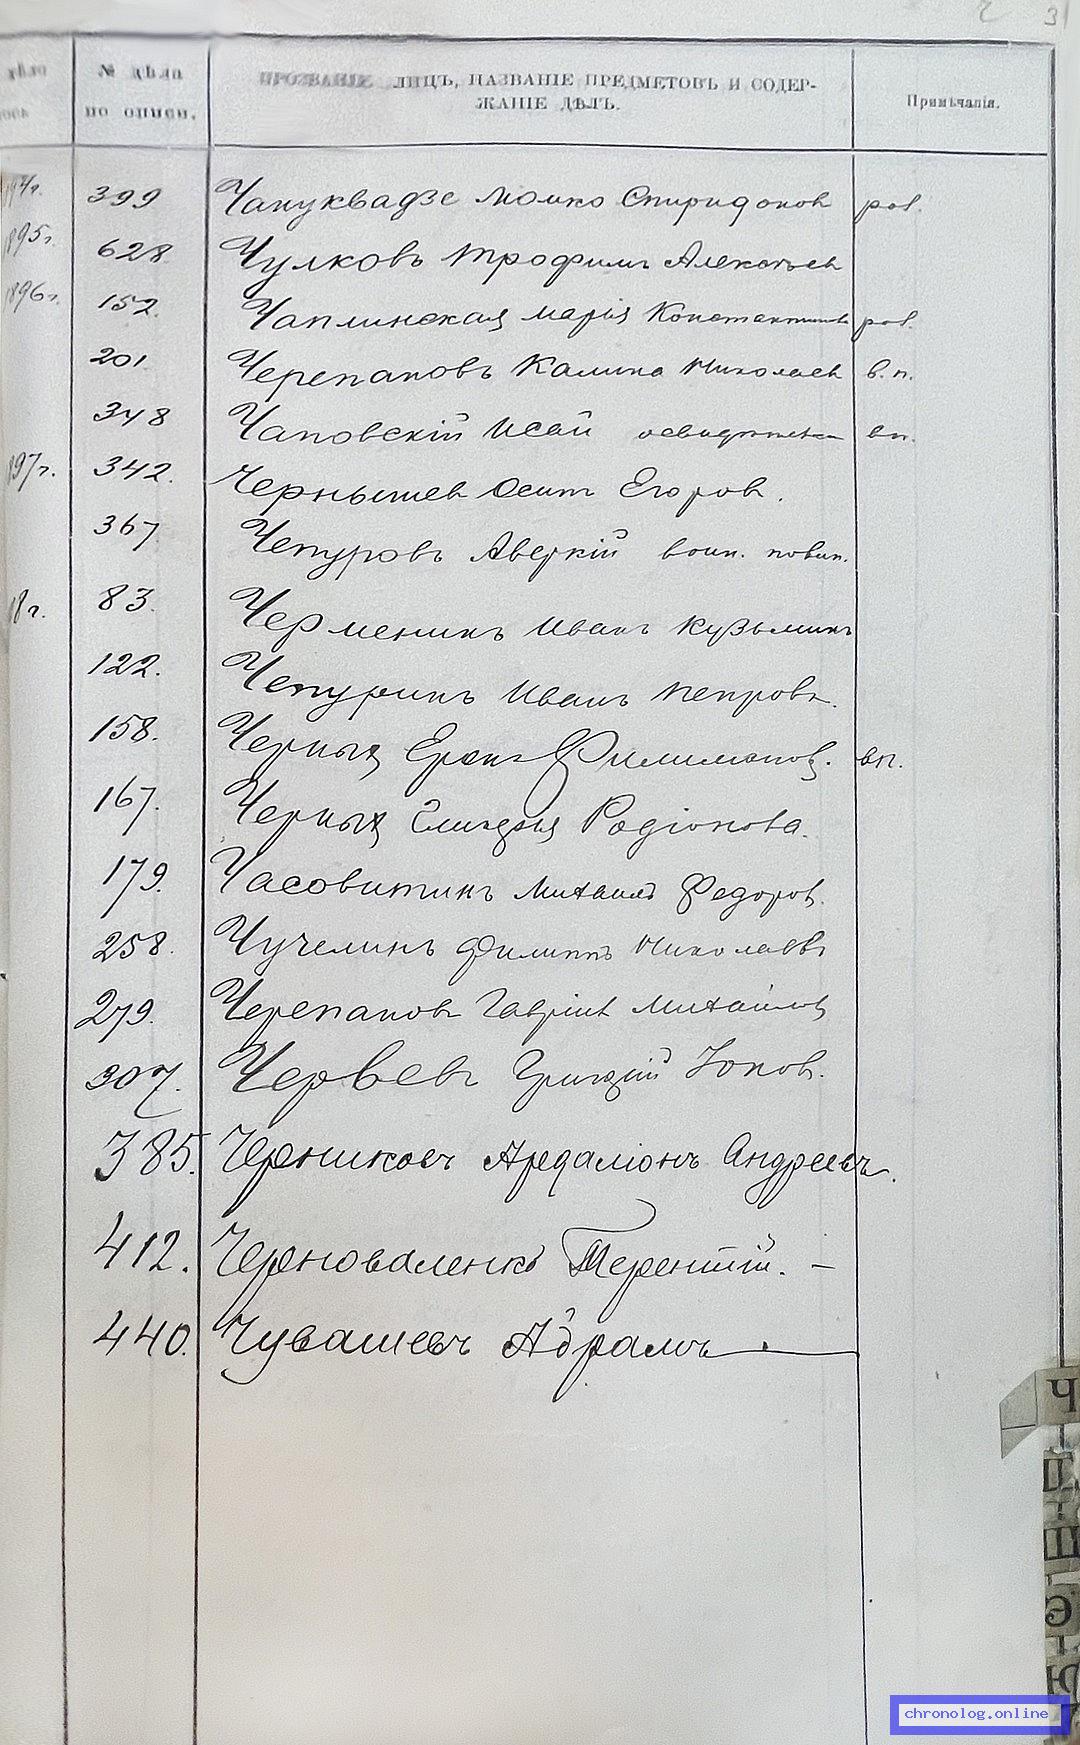 Ч 31
№ дѣла
по описи.
ПРОЗВАНІЕ ЛИЦЪ, НАЗВАНІЕ ПРЕДМЕТОВЪ И СОДЕР-
ЖАНІЕ ДѢЛЪ.
Примѣчанія.
399 Чануквадзе Момко Спиридонов роз.
1895г. 628 Чулковъ Трофимъ Алексѣев
1896г. 152. Чаплинская Марія роз.
201. Черепановъ Калина Николаев в. п.
348 Чаповскій Исай вп.
97г. 342. Чернышев Осип Егоров.
367. Чепуровъ Аверкій воин. повин.
8г. 83. Черменинъ Иванъ Кузьминъ
122. Чепуринъ Иванъ Петровъ.
158. Черных Филимонов. вп.
167. Черных Родіонова.
179. Часовитинъ Михаилъ Федоров.
258. Чучелинъ Филиппъ Николаевъ
279. Черепановъ Гавріил Михайлов
307. Червевъ Григорій Іонов.
385. Черниковъ Ардаліонъ Андреевъ.
412. Черноваленко Терентій. –
440. Чувашевъ Абрамъ
Ч
Ш
Э
Ю
chronolog.online